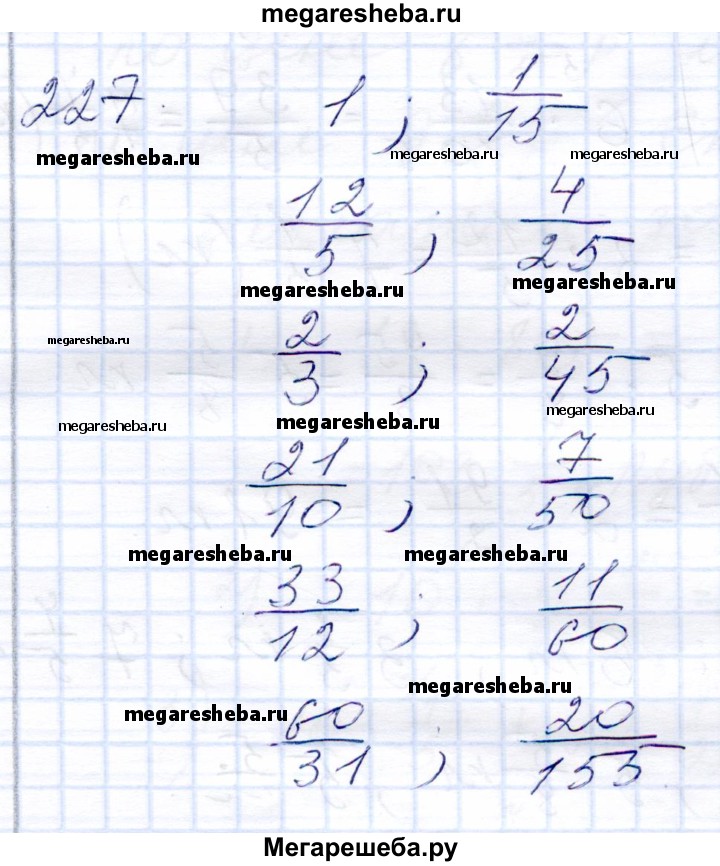 megaresheba.ru
227. 1 ; 1/15
megaresheba.ru megaresheba.ru megaresheba.ru
12/5 ; 4/25
megaresheba.ru megaresheba.ru
megaresheba.ru
2/3 ; 2/45
megaresheba.ru megaresheba.ru megaresheba.ru
21/10 ; 7/50
megaresheba.ru megaresheba.ru
33/12 ; 11/60
megaresheba.ru megaresheba.ru
megaresheba.ru megaresheba.ru
60/31 ; 20/155
Мегарешеба.ру